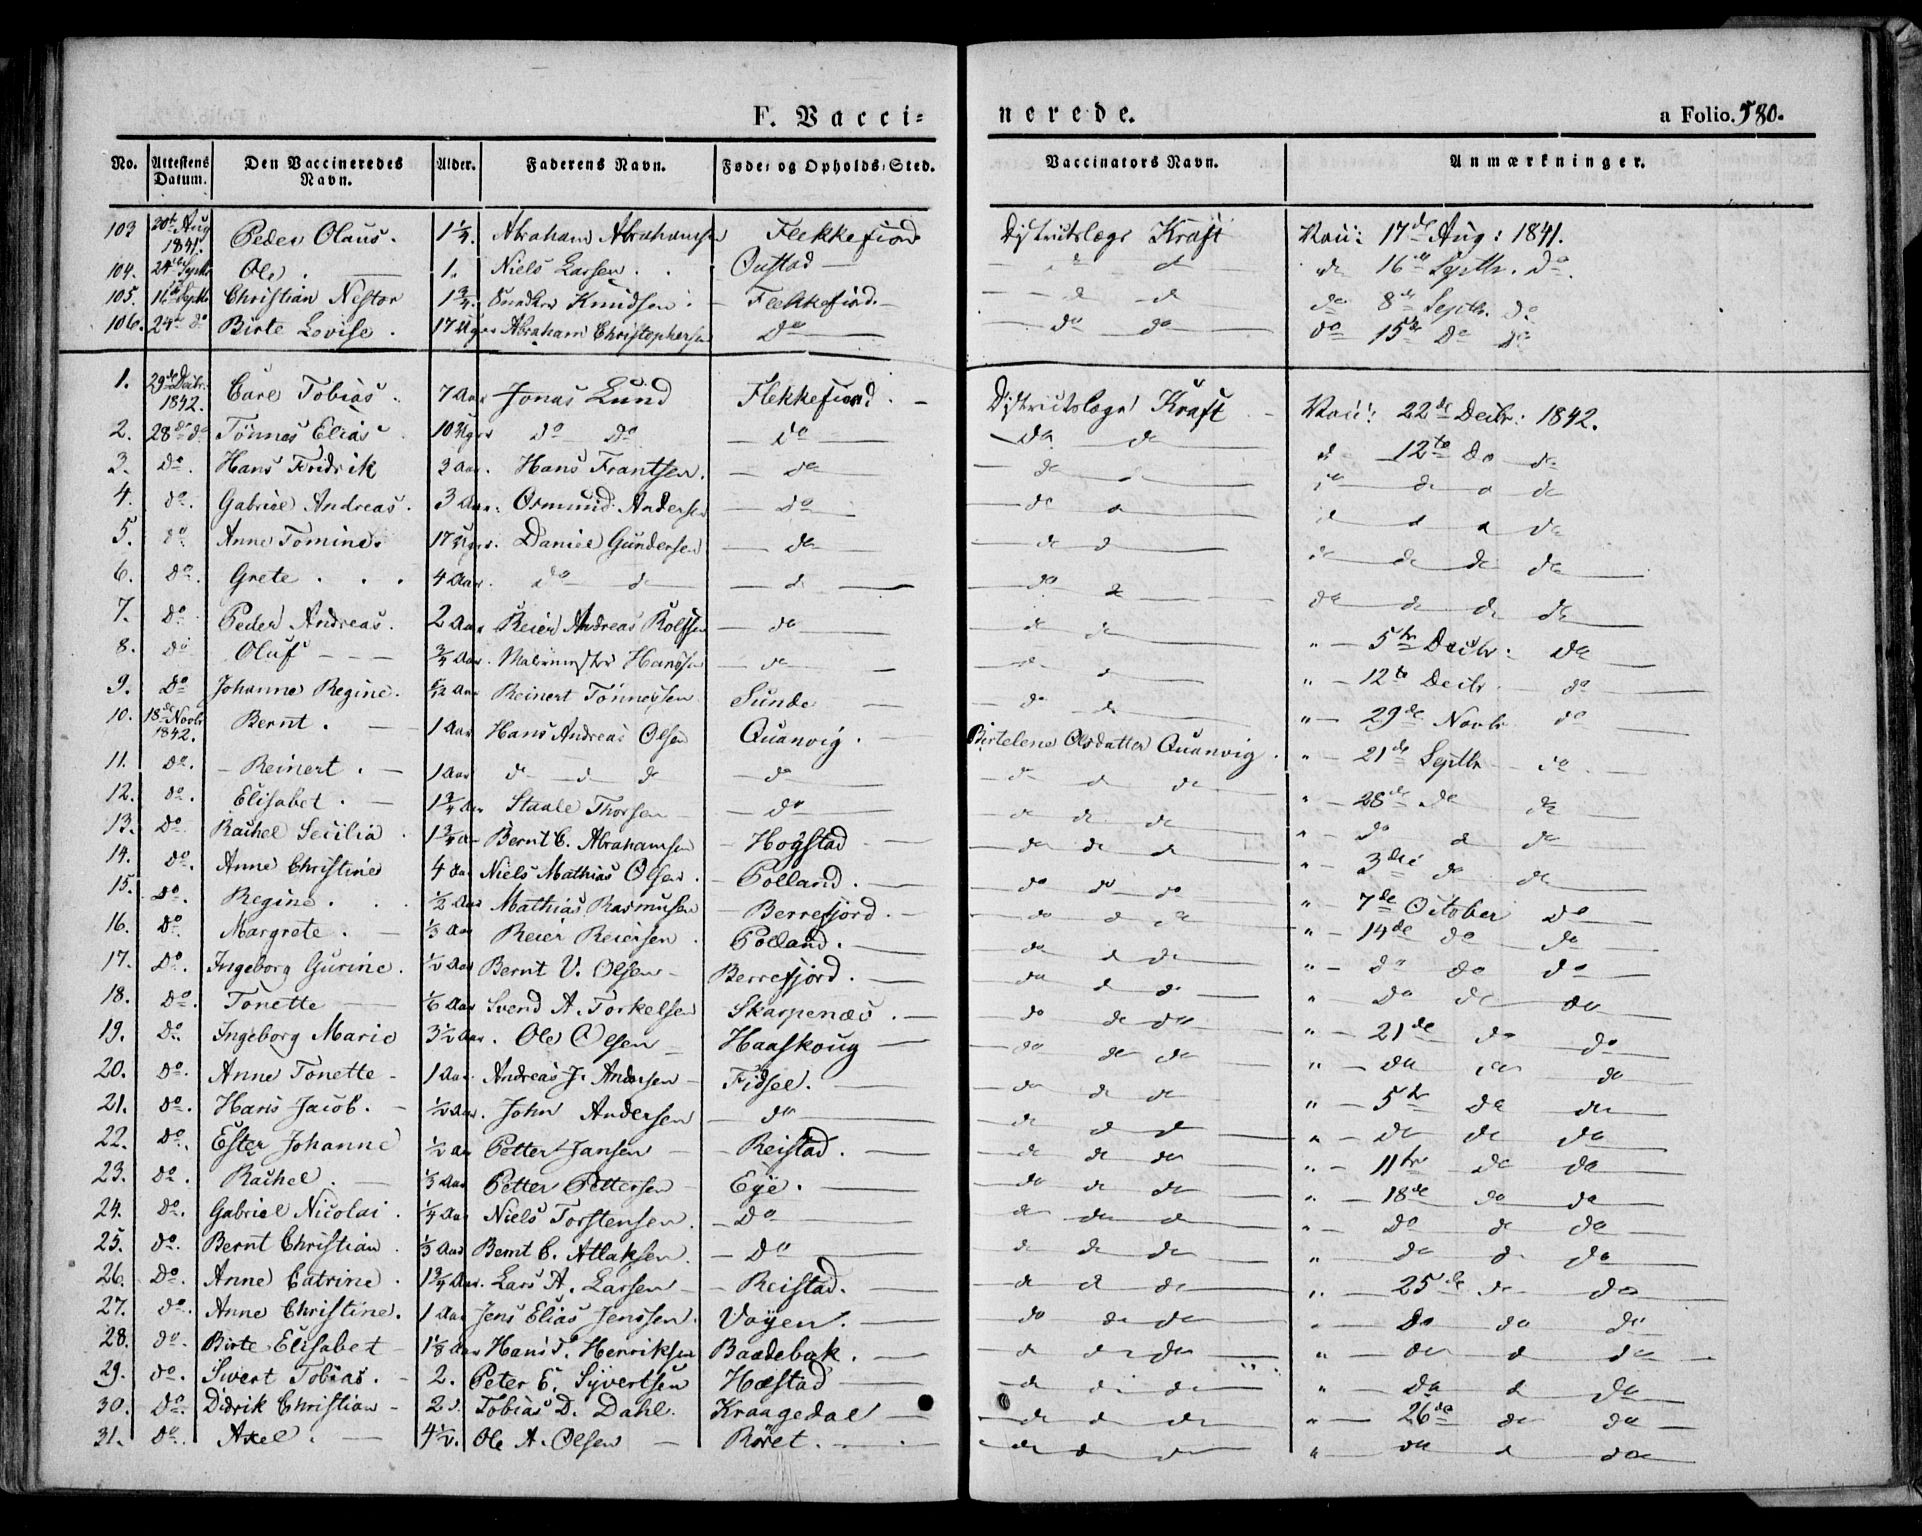 F. Vacci-
nerede.
a Folio. 580.
No. Attestens Datum. Den Vaccineredes Navn. Alder. Faderens Navn. Føde- og Opholds-Sted. Vaccinators Navn. Anmærkninger.
103 20de Aug 1841. Peder Olaus. 1 1/4. Abraham Abrahamsen Flekkefiord Districtslæge Kraft Vacc: 17de Aug: 1841.
104. 24de Septbr Ole. 1. Niels Larsen. Oustad do do do 16de Septbr. do.
105. 16de Septbr Christian Nestor 1 3/4. Knudsen. Flekkefiord. do do do 8de Septbr. do
106. 24de do Birte Lovise. 17 Uger Abraham Christophersen do do do do 15de do do
1. 29de Decbr. 1842. Carl Tobias. 7 Aar Jonas Lund Flekkefiord. Districtslæge Kraft Vacc: 22de Decbr: 1842.
2. 28de do Tønnes Elias 10 Uger do do do do do do 12te do do
3. do. Hans Fredrik 3 Aar. Hans Frantsen. do do do do do do
4. do. Gabriel Andreas. 3 Aar. Osmund Andersen do do do do do do do
5. do Anne Tomine. 17 Uger. Daniel Gundersen do do do do do do do
6. do. Grete. 4 Aar. do do do do do do do do do
7. do. Peder Andreas. 2 Aar Reier Andreas Rolfsen do do do " 5te Decbr. do
8. do Oluf 3/4 Aar. Hansen do do do " 12te Decbr do
9. do Johanne Regine. Aar Reinert Tønnesen Sunde do do " 29de Novbr do
10. 18de Novbr 1842. Bernt. 1 Aar Hans Andreas Olsen Quanvig. Birtelene Olsdatter Quanvig. " 21de Septbr do
11. do. Reinert. 1 Aar do do do do do do do " 28de do do
12. do. Elisabet. 1 3/4 Aar Staale Thorsen do do do do " do do do
13. do Rachel Secilia 1 3/4 Aar Bernt C. Abrahamsen Hogstad do do do " 3die do do
14. do. Anne Christine 4 Aar Niels Mathias Olsen. Polland. do do do " 7de October do
15. do. Regine. 1/2 Aar Mathias Rasmusen Berrefjord. do do do " 14de do do
16. do. Margrete. 1/3 Aar Reier Reiersen. Polland. do do do " do do do
17. do. Ingeborg Gurine. 1/2 Aar Bernt V. Olsen Berrefjord. do do do " do do do
18. do. Tonette 1/6 Aar Svend A. Torkelsen Skarpenæs. do do do " 21de do do
19. do. Ingeborg Marie 3 1/2 Aar. Ole Olsen Haaskoug do do do " do do do
20. do. Anne Tonette 1 Aar. Andreas J. Andersen Fidsel. do do do " 5te do do
21. do. Hans Jacob. 1/2 Aar. John Andersen do do do do " do do do
22. do. Ester Johanne 1/2 Aar Petter Jansen Reistad. do do do " 11te do do
23. do. Rachel. 1/3 Aar Petter Pettersen Eye. do do do " 18de do do
24. do. Gabriel Nicolai. 1/4 Aar Niels Torstensen. do do do do " do do do
25. do. Bernt Christian. 1/3 Aar Bernt C. Atlaksen. do do do do " do do do
26. do. Anne Catrine. 1 3/4 Aar. Lars A. Larsen Reistad. do do do " 25de do do
27. do. Anne Christine. 1 Aar Jens Elias Jenssen. Vøyen. do do do " do do do
28. do. Birte Elisabet 1 1/8 Aar Hans T. Henriksen Baadebak. do do do " do do do
29. do. Sivert Tobias. 2. Peter E. Syvertsen Hæstad do do do " do do do
30. do. Didrik Christian 2 Tobias D. Dahl. Kraagedal do do do " 26de do do
31. do. Axel. 4 1/2. Ole A. Olsen Røret. do do do " do do do